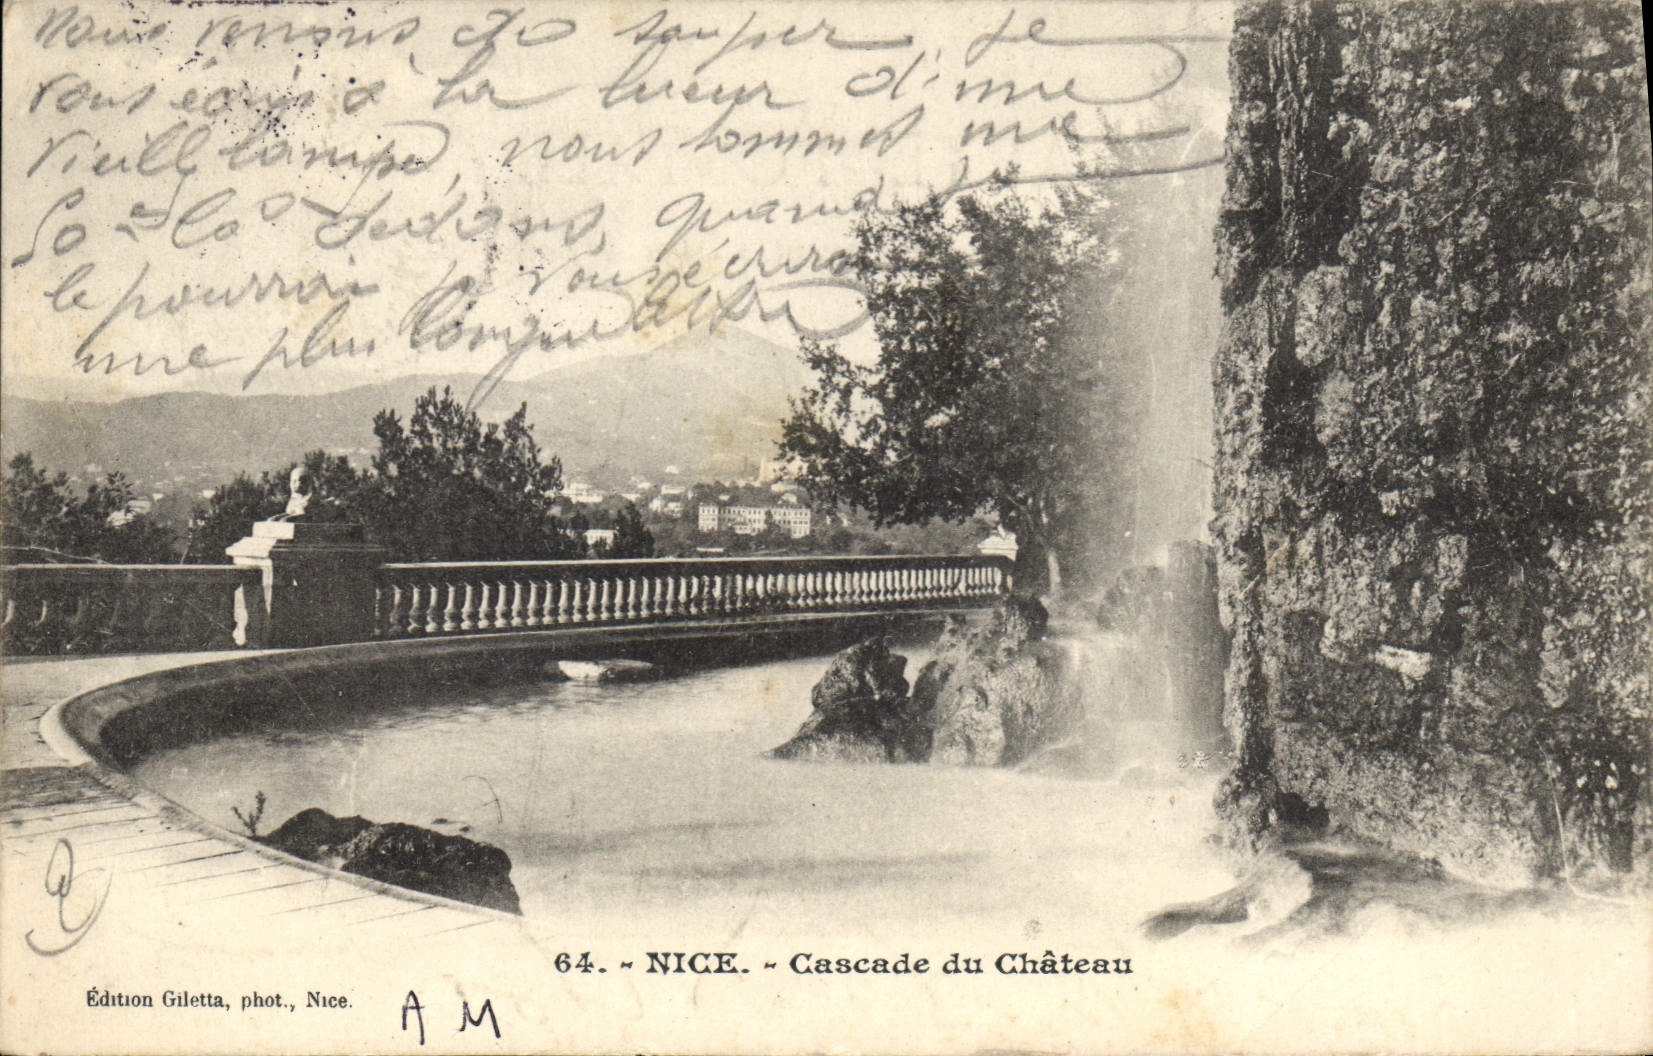 Nous venons de souper je
vous écris à la lueur d'une
vieille lampe, nous sommes une
là-dedans, quand je
le pourrai je vous écrirai
une plus longue lettre
64. - NICE. - Cascade du Château
Édition Giletta, phot., Nice.
A M